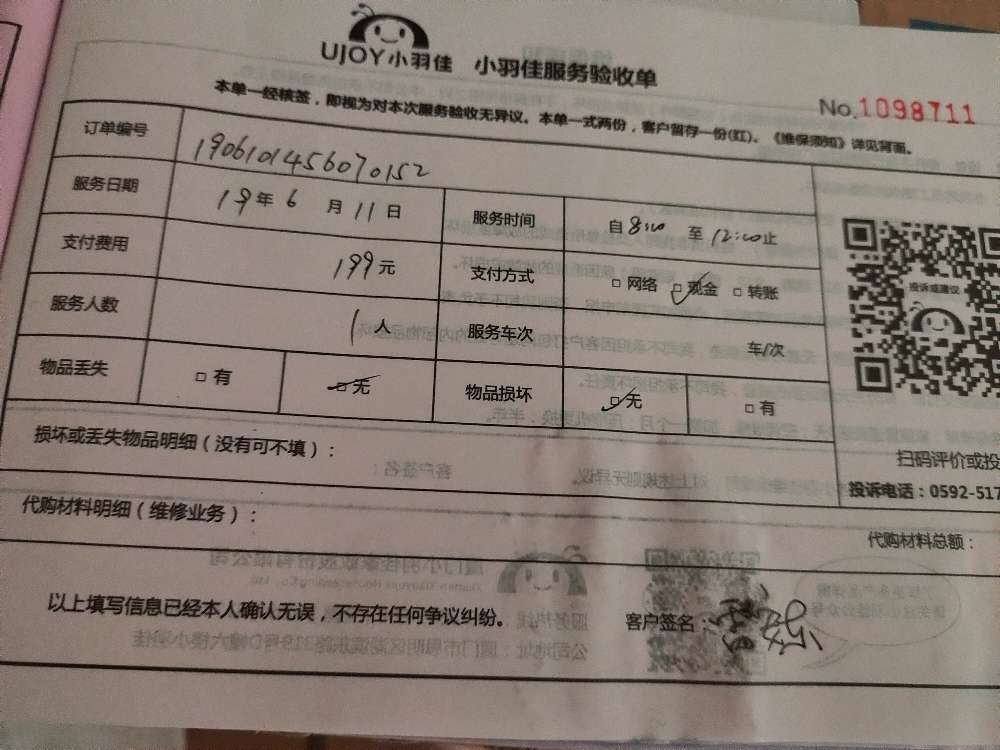 UJOY小羽佳 小羽佳服务验收单
No.1098711
本单一经核签，即视为对本次服务验收无异议。本单一式两份，客户留存一份(红)。《维保须知》详见背面。
订单编号 1906101456070152
服务日期 19年6月11日 服务时间 自8:00至12:00止
支付费用 199元 支付方式 □网络 □现金 □转账
投诉或建议
服务人数 1人 服务车次 车/次
物品丢失 □有 □无 物品损坏 □无 □有
损坏或丢失物品明细（没有可不填）：
扫码评价或投
投诉电话：0592-517
代购材料明细（维修业务）：
代购材料总额：
以上填写信息已经本人确认无误，不存在任何争议纠纷。 客户签名：